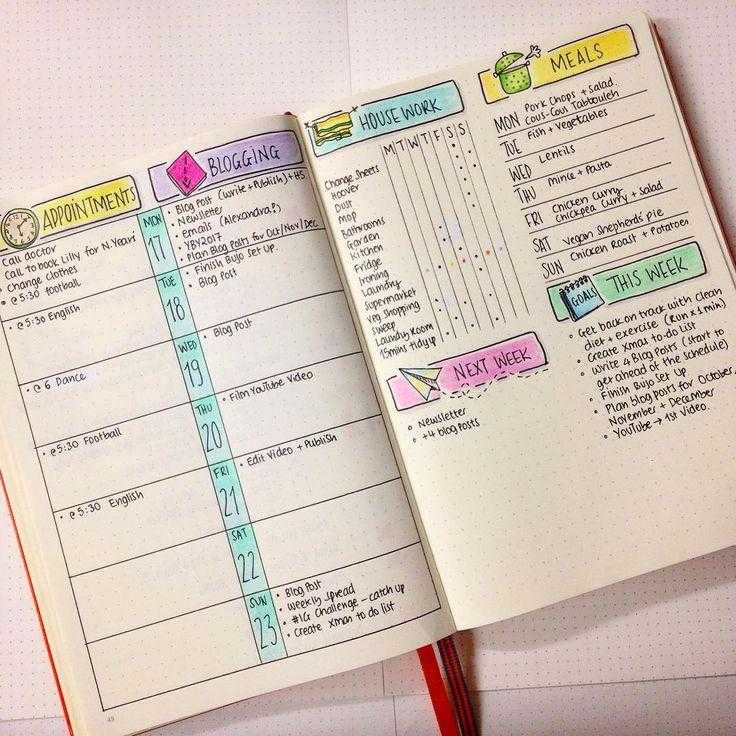 APPOINTMENTS
Call doctor
Call to book Lilly for N.Years
Change clothes
@ 5:30 football
@ 5:30 English
@ 6 Dance
@ 5:30 Football
@ 5:30 English
MON
17
TUE
18
WED
19
THU
20
FRI
21
SAT
22
SUN
23
BLOGGING
Blog Post (write + Publish) + HS
Newsletter
Emails (Alexandra?)
YBY2017
Plan Blog Posts for Oct/Nov/Dec
Finish Bujo Set up.
Blog Post
Blog Post
Film YouTube Video
Edit Video + Publish
Blog Post
Weekly Spread
#IG Challenge – catch up
Create Xmas to do list
49
HOUSEWORK
M T W T F S S
Change Sheets
Hoover
Dust
Mop
Bathrooms
Garden
Kitchen
Fridge
Ironing
Laundry
Supermarket
Veg Shopping
Sweep
Laundry Room
15mins tidy up
NEXT WEEK
Newsletter
+4 blog posts
MEALS
MON Pork Chops + Salad.
Cous-Cous Tabbouleh
TUE Fish + Vegetables
WED Lentils
THU Mince + Pasta
FRI Chicken Curry
Chickpea Curry + salad
SAT Vegan Shepherds' pie
SUN Chicken Roast + Potatoes
GOALS
THIS WEEK
Get back on track with clean
diet + exercise (Run x 1 min)
Create Xmas to do list
Write 4 Blog Posts (start to
get ahead of the schedule)
Finish Bujo Set Up
Plan blog posts for October,
November + December
YouTube → 1st Video.